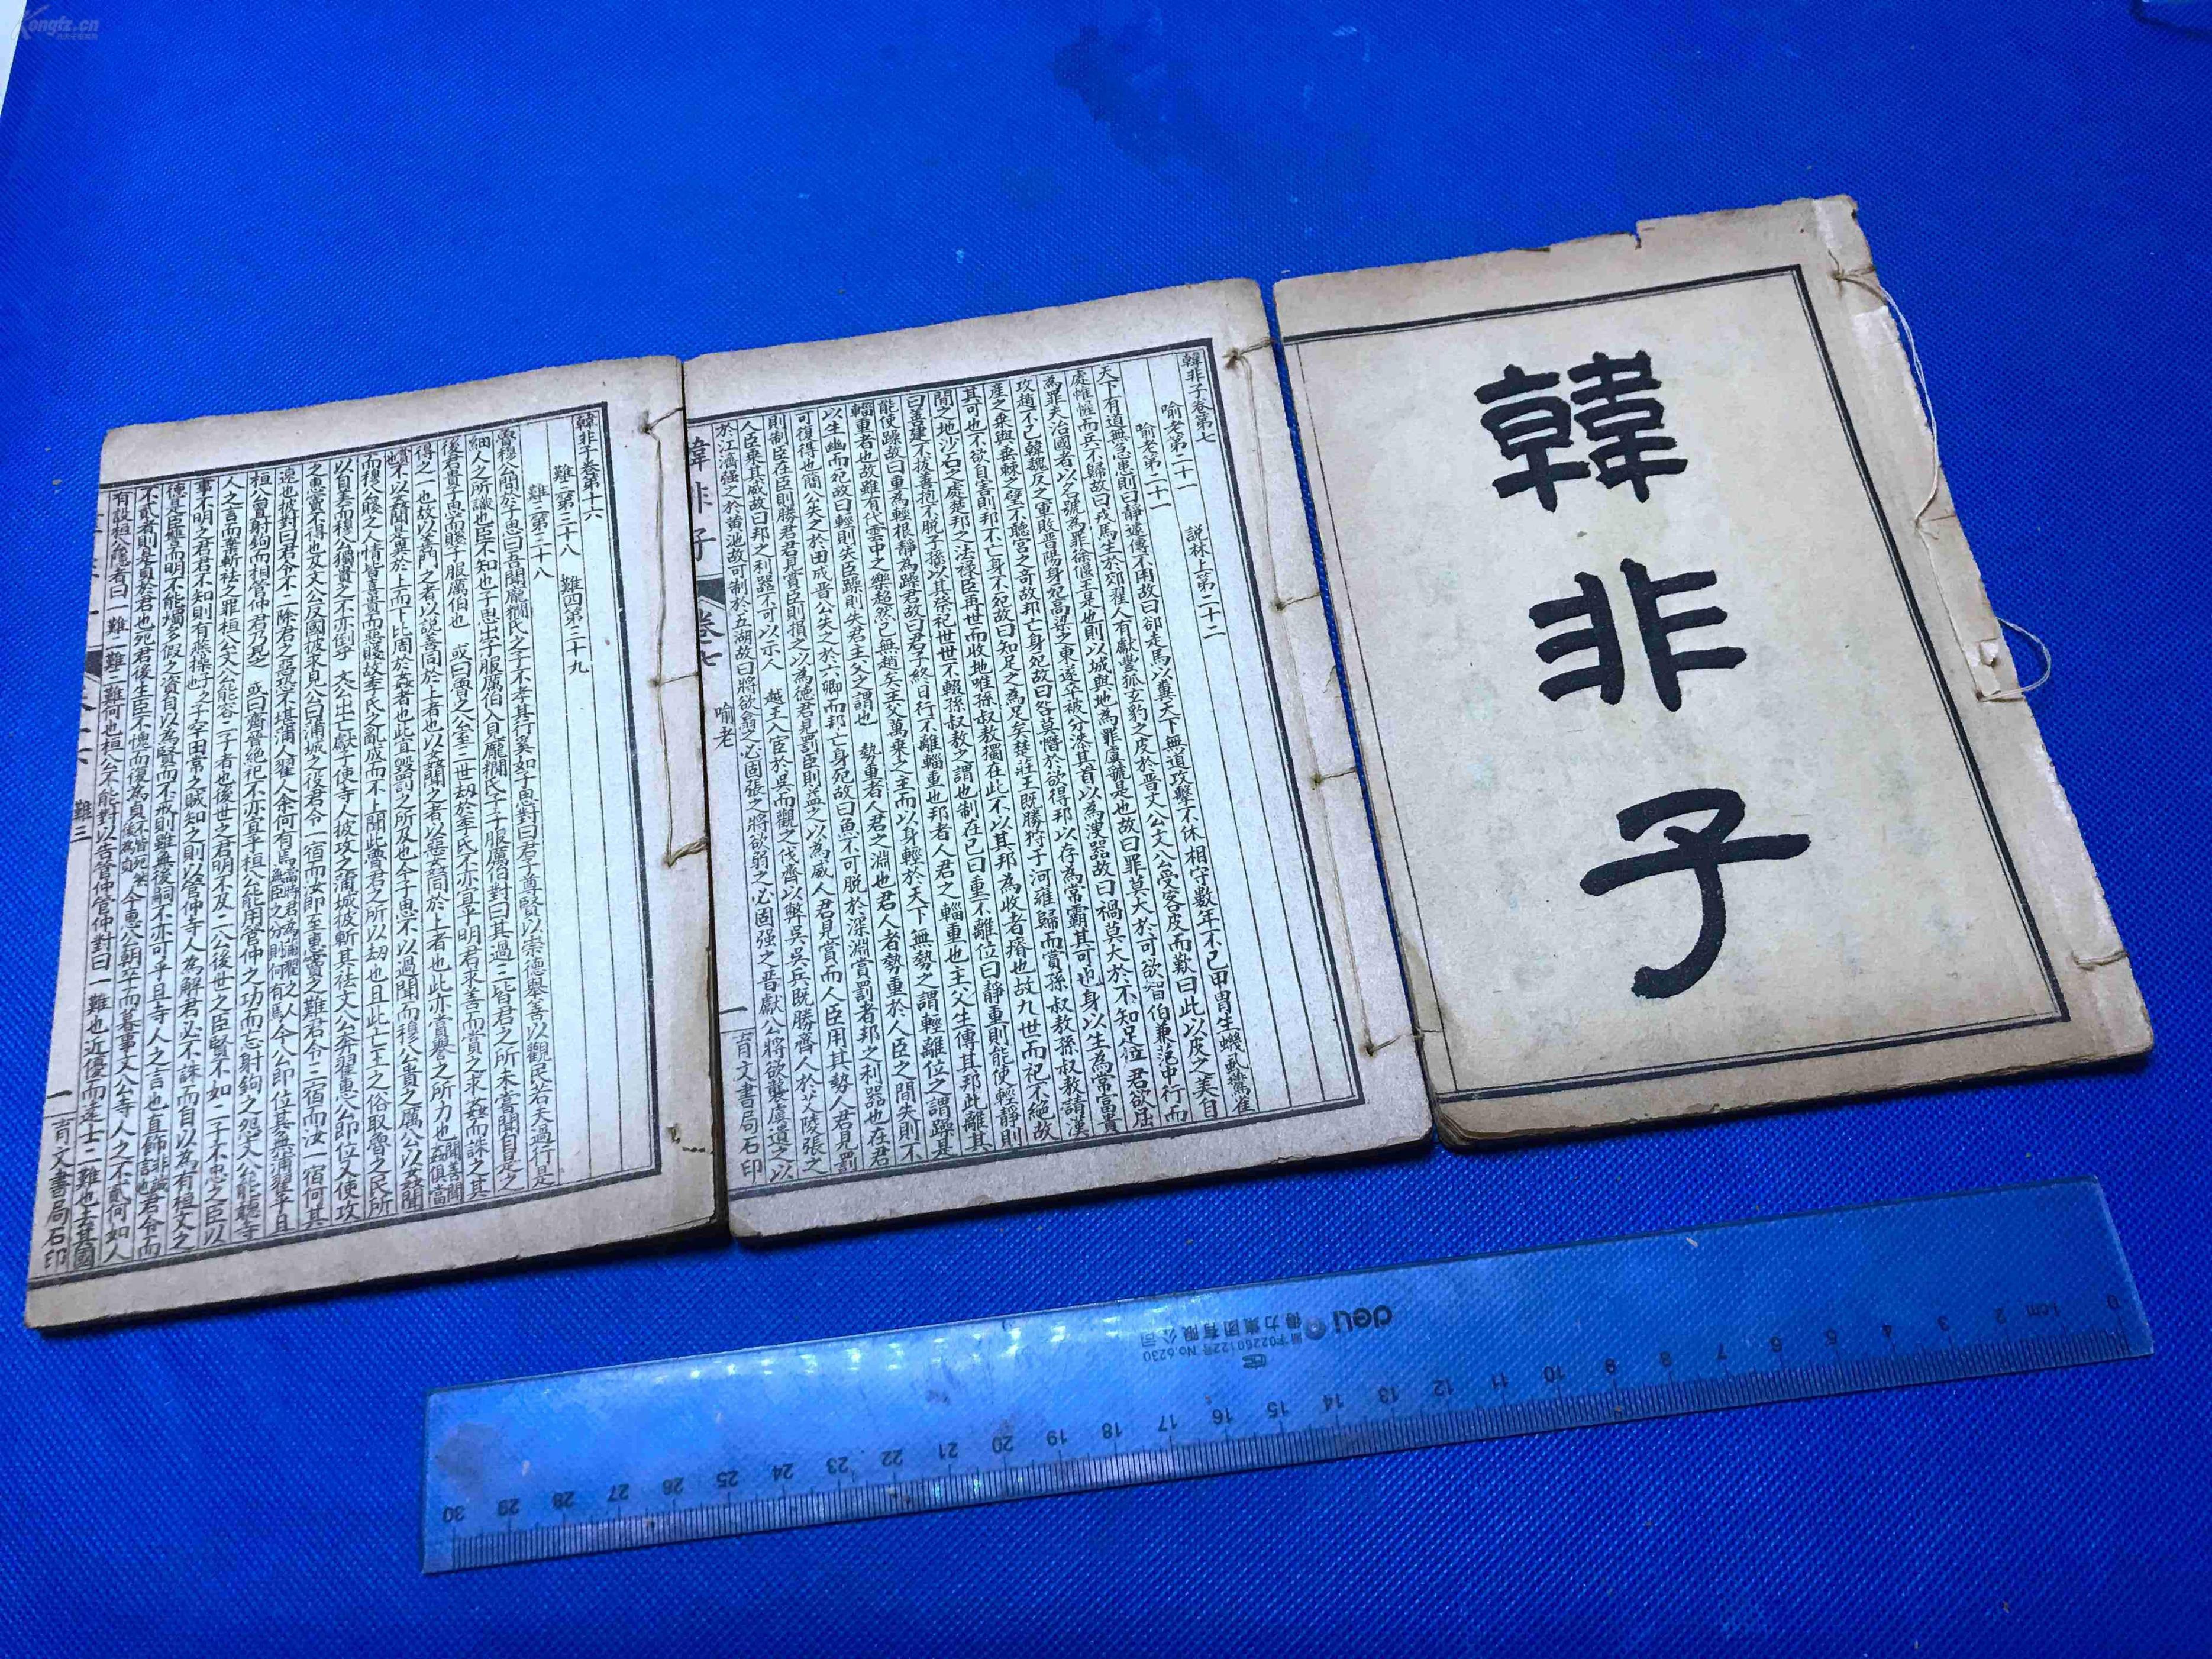 韓非子
韓非子卷第七
喻老第二十一　說林上第二十二
喻老第二十一
天下有道無急患則曰靜遽傳不用故曰卻走馬以糞天下無道攻擊不休相守數年不已甲冑生蟣虱鷰雀
處帷幄而兵不歸故曰戎馬生於郊翟人有獻豐狐玄豹之皮於晋文公文公受客皮而歎曰此以皮之美自
為罪夫治國者以名號為罪徐偃王是也則以城與地為罪虞虢是也故曰罪莫大於可欲智伯兼范中行而
攻趙不已韓魏反之軍敗晋陽身死高梁之東遂卒被分漆其首以為溲器故曰禍莫大於不知足虞君欲屈
產之乘與垂棘之璧不聽宮之奇故邦亡身死故曰咎莫憯於欲得邦以存為常霸其可也身以生為常富貴
其可也不欲自害則邦不亡身不死故曰知足之為足矣楚莊王既勝狩于河雍歸而賞孫叔敖孫叔敖請漢
間之地沙石之處楚邦之法祿臣再世而收地唯孫叔敖獨在此不以其邦為收者瘠也故九世而祀不絕故
曰善建不拔善抱不脫子孫以其祭祀世世不輟孫叔敖之謂也制在己曰重不離位曰靜重則能使輕靜則
能使躁故曰重為輕根靜為躁君故曰君子終日行不離輜重也邦者人君之輜重也主父生傳其邦此離其
輜重者也故雖有代雲中之樂超然已無趙矣主父萬乘之主而以身輕於天下無勢之謂輕離位之謂躁是
以生幽而死故曰輕則失臣躁則失君主父之謂也　勢重者人君之淵也君人者勢重於人臣之間失則不
可復得也簡公失之於田成晋公失之於六卿而邦亡身死故曰魚不可脫於深淵賞罰者邦之利器也在君
則制臣在臣則勝君君見賞臣則損之以為德君見罰臣則益之以為威人君見賞而人臣用其勢人君見罰
人臣乘其威故曰邦之利器不可以示人　越王入宦於吳而觀之伐齊以弊吳吳兵既勝齊人於艾陵張之
於江濟強之於黃池故可制於五湖故曰將欲翕之必固張之將欲弱之必固强之晋獻公將欲襲虞遺之以
韓非子　卷七　喻老　一　育文書局石印
韓非子卷第十六
難三第三十八　難四第三十九
難三第三十八
魯穆公問於子思曰吾聞龐𥡜氏之子不孝其行奚如子思對曰君子尊賢以崇德舉善以觀民若夫過行是
細人之所識也臣不知也子思出子服厲伯入見龐𥡜氏子子服厲伯對曰其過三皆君之所未嘗聞自是之
後君貴子思而賤子服厲伯也　或曰魯之公室三世劫於季氏不亦宜乎明君求善而賞之求姦而誅之其
得之一也故以善聞之者以說善同於上者也以姦聞之者以惡姦同於上者也此亦賞譽之所力也
不以姦聞是異於上而下比周於姦者也此宜毀罰之所及也今子思不以過聞而穆公貴之厲公以姦聞
而穆公賤之人情皆喜貴而惡賤故季氏之亂成而不上聞此魯君之所以劫也且此亡王之俗取魯之民所
以自美而穆公獨貴之不亦倒乎　文公出亡獻子使寺人披攻之蒲城披斬其祛文公奔翟惠公即位又使攻
之惠竇不得也及文公反國披求見公曰蒲城之役君令一宿而汝即至惠竇之難君令三宿而汝一宿何其
速也披對曰君令不二除君之惡恐不堪蒲人翟人余何有焉今公即位其無蒲翟乎且
桓公置射鉤而相管仲君乃見之　或曰齊晉絕祀不亦宜乎桓公能用管仲之功而忘射鉤之怨文公能聽寺
人之言而棄斬祛之罪桓公文公能容二子者也後世之君明不及二公後世之臣賢不如二子不忠之臣以
事不明之君君不知則有燕操子之子罕田常之賊知之則以管仲寺人為解君必不誅而自以為有桓文之
德是臣讎而明不能燭多假之資自以為賢而不戒則雖無後嗣不亦可乎且寺人之言也直飾非識也君令而
不貳者則是貞於君也死君後生臣不愧而復為貞今惠公朝卒而暮事文公寺人之不貳何如人
有設桓公隱者曰一難二難三難何也桓公不能對以告管仲管仲對曰一難也近優而遠士二難也去其國
卷十六　難三　一　育文書局石印
deli 得力集团有限公司
浙字02260122号 No.6230
0 1cm 2 3 4 5 6 7 8 9 10 11 12 13 14 15 16 17 18 19 20 21 22 23 24 25 26 27 28 29 30
Kongfz.cn